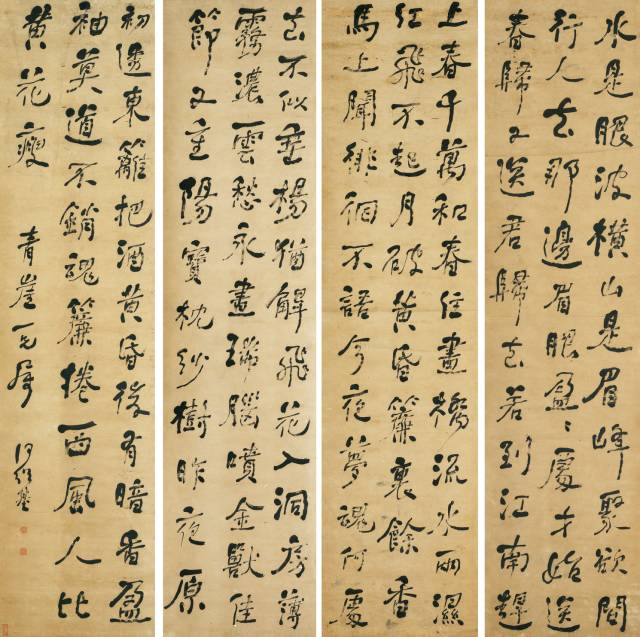 水是眼波橫山是眉峰聚欲問
行人去那邊眉眼盈盈處才始送
春歸又送君歸去若到江南趕
上春千萬和春住畫橋流水雨濕
紅飛不起月破黃昏簾裏餘香
馬上聞徘徊不語今夜夢魂何處
去不似垂楊猶解飛花入洞房薄
霧濃雲愁永晝瑞腦噴金獸佳
節又重陽寶枕紗櫥昨夜涼
初透東籬把酒黃昏後有暗香盈
袖莫道不銷魂簾捲西風人比
黃花瘦 青崖兄屬 何紹基